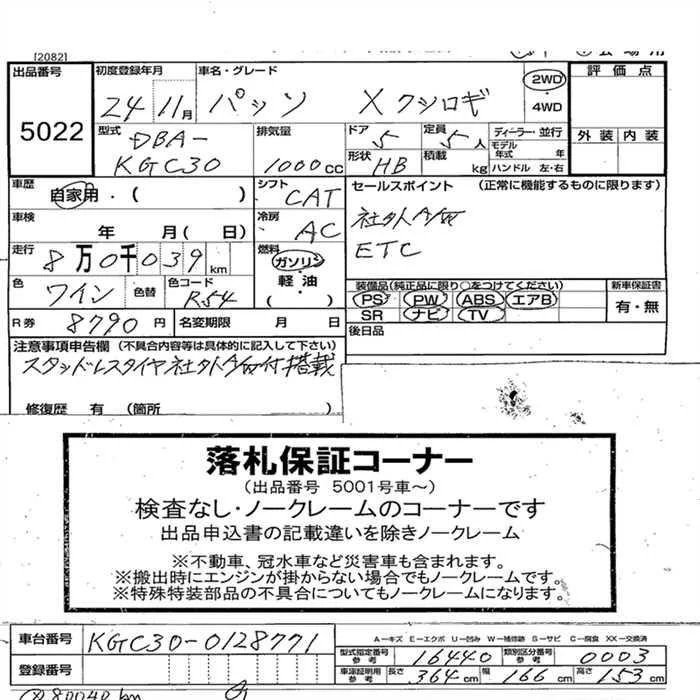 [2082]
出品番号 5022
初度登録年月 24年11月
車名・グレード パッソ X クツロギ
2WD・4WD
評価点
外装 内装
型式 DBA-KGC30
排気量 1000cc
ドア 5
定員 5人
ディーラー・並行
モデル年式 年
形状 HB
積載 kg
ハンドル 左・右
車歴 自家用・( )
シフト CAT
セールスポイント (正常に機能するものに限ります)
社外AW
ETC
車検 年 月( 日)
冷房 AC
走行 8万0千039km
燃料 ガソリン・軽油・( )
色 ワイン
色替
色コード R54
装備品(純正品に限り○をつけてください)
PS PW ABS エアB
SR ナビ TV
新車保証書 有・無
R券 8790円
名変期限 月 日
後日品
注意事項申告欄 (不具合内容等は具体的に記入して下さい)
スタッドレスタイヤ社外AW付搭載
修復歴 有 (箇所 )
落札保証コーナー
(出品番号 5001号車~)
検査なし・ノークレームのコーナーです
出品申込書の記載違いを除きノークレーム
※不動車、冠水車など災害車も含まれます。
※搬出時にエンジンが掛からない場合でもノークレームです。
※特殊特装部品の不具合についてもノークレームになります。
車台番号 KGC30-0128771
A-キズ E-エクボ U-凹み W-補修跡 S-サビ C-腐食 XX-交換済
型式指定番号 参考 16440
類別区分番号 参考 0003
登録番号
車庫証明用 参考 長さ 364cm 幅 166cm 高さ 153cm
80040km